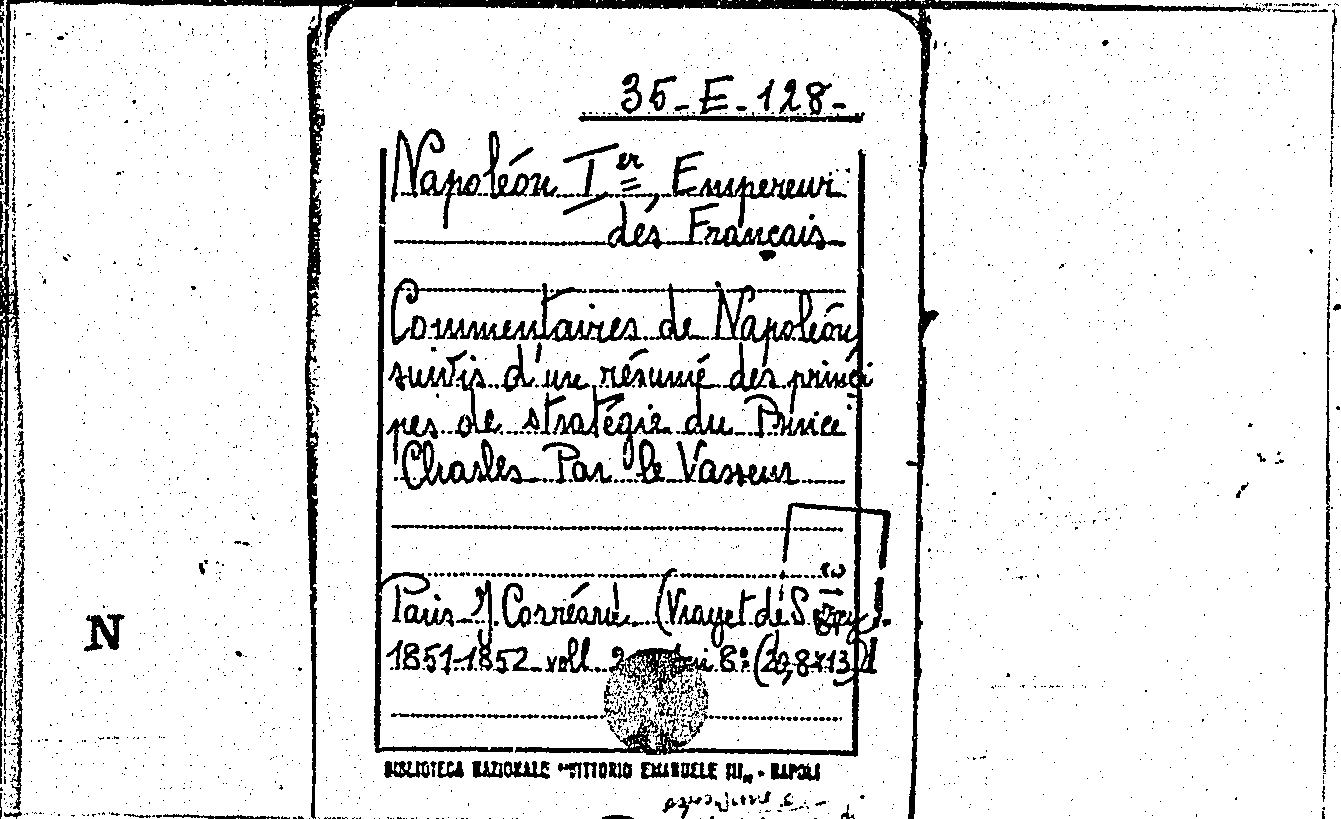 35-E-128-
Napoléón Ier, Empereur
des Français
Commentaires de Napoléón
suivis d'un résumé des princi
pes de stratégie du Prince
Charles Par le Vasseur
Paris J. Corréard (Vrayet de
1851-1852 voll. 2 8º (20,8x13)
N
BIBLIOTECA NAZIONALE "VITTORIO EMANUELE III" - NAPOLI